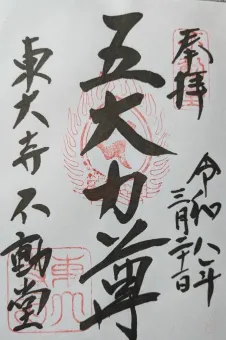 奉拝
令和八年
三月二十一日
五大力尊
東大寺 不動堂